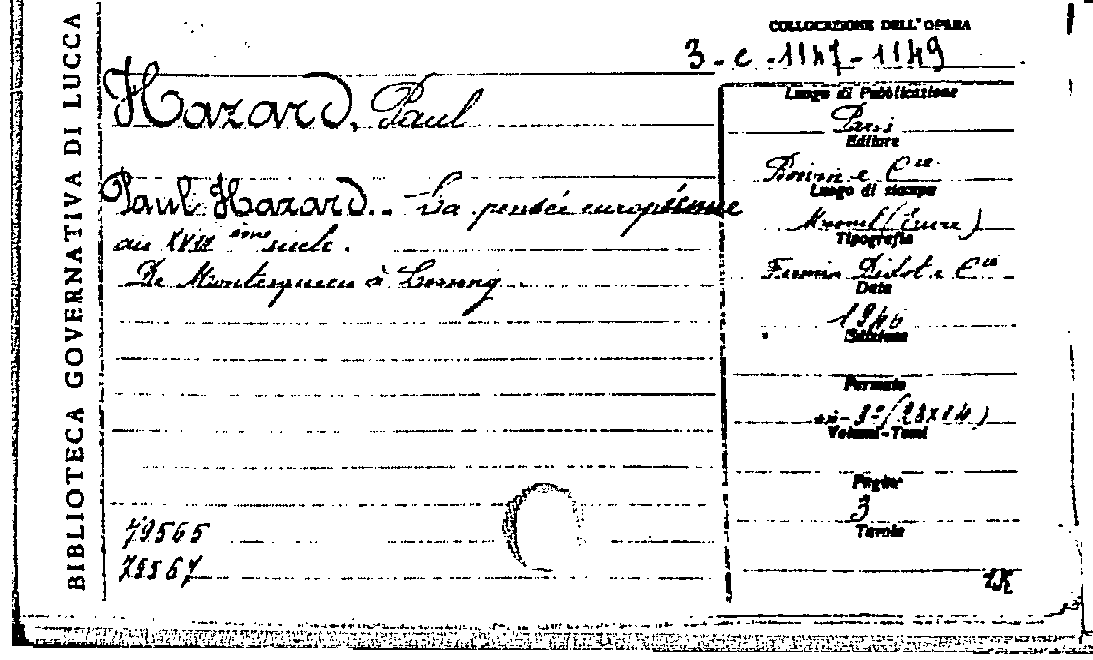 BIBLIOTECA GOVERNATIVA DI LUCCA
COLLOCAZIONE DELL'OPERA
3-c-1147-1149
Hazard, Paul
Paul Hazard.. La pensée européenne
au XVIII ème siècle.
De Montesquieu à Lessing.
79565
79567
Luogo di Pubblicazione
Parsi
Editore
Boivin e C.ie
Luogo di stampa
Mesnil (Eure)
Tipografia
Firmin Didot e C.ie
Data
1946
Edizione
Formato
in-8º (23x14)
Volumi-Tomi
Pagine
3
Tavole